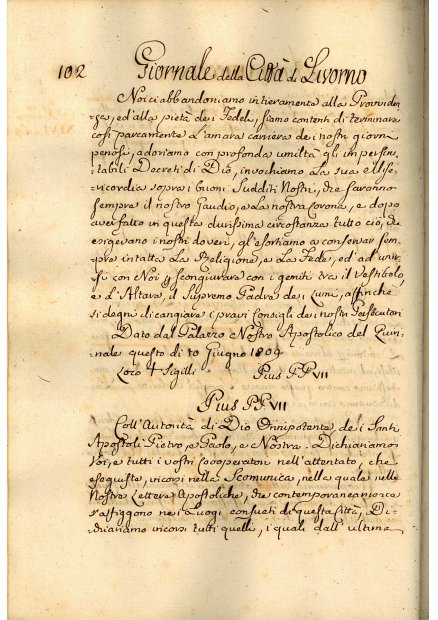 102 Giornale della Città di Livorno
Noi ci abbandoniamo intieramente alla Providen-
za, ed alla pietà dei Fedeli, siamo contenti di terminare
così parcamente l'amara carriera dei nostri giorni
penosi, adoriamo con profonda umiltà gli impersru-
tabili Decreti di Dio, invochiamo La sua Mise-
ricordia sopra i buoni Sudditi Nostri, che saranno
sempre il nostro Gaudio, e La nostra Corona, e dopo
aver fatto in questa durissima circostanza tutto ciò, che
esigevano i nostri doveri, gl'esortiamo a conservar sem-
pre intatta La Religione, e La Fede, ed ad unir-
si con Noi per scongiurare con i gemiti tra il Vestibolo,
e l'Altare, il Supremo Padre dei Lumi, affinchè
si degni di cangiare i pravi Consigli dei nostri Persecutori
Dato dal Palazzo Nostro Apostolico del Quiri-
nale questo dì 10 Giugno 1809
Loco + Sigilli Pius P.P. VII
Pius P.P. VII
Coll'Autorità di Dio Onnipotente, dei Santi
Apostoli Pietro, e Paolo, e Nostra, Dichiariamo
Voi, e tutti i vostri Cooperatori nell'attentato, che
eseguiste, incorsi nella Scomunica, nella quale nelle
Nostre Lettere Apostoliche, che contemporaneamente
s'affiggono nei Luogi consueti di questa Città, Di-
chiariamo incorsi tutti quelli, i quali dall'ultima